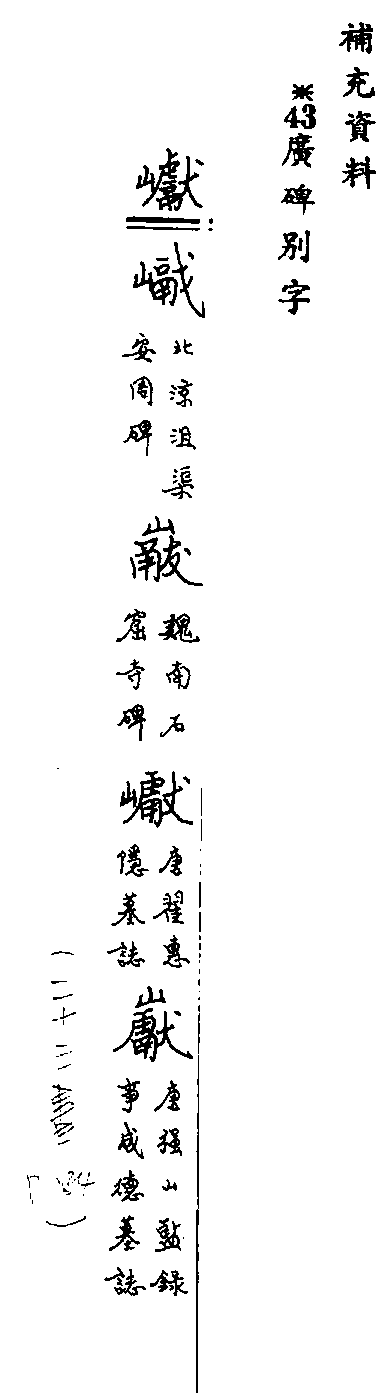 補充資料
※43廣碑別字
巘：
北涼沮渠
安周碑
魏南石
窟寺碑
唐翟惠
隱墓誌
巚
唐强山監錄
事成德墓誌
(二十三